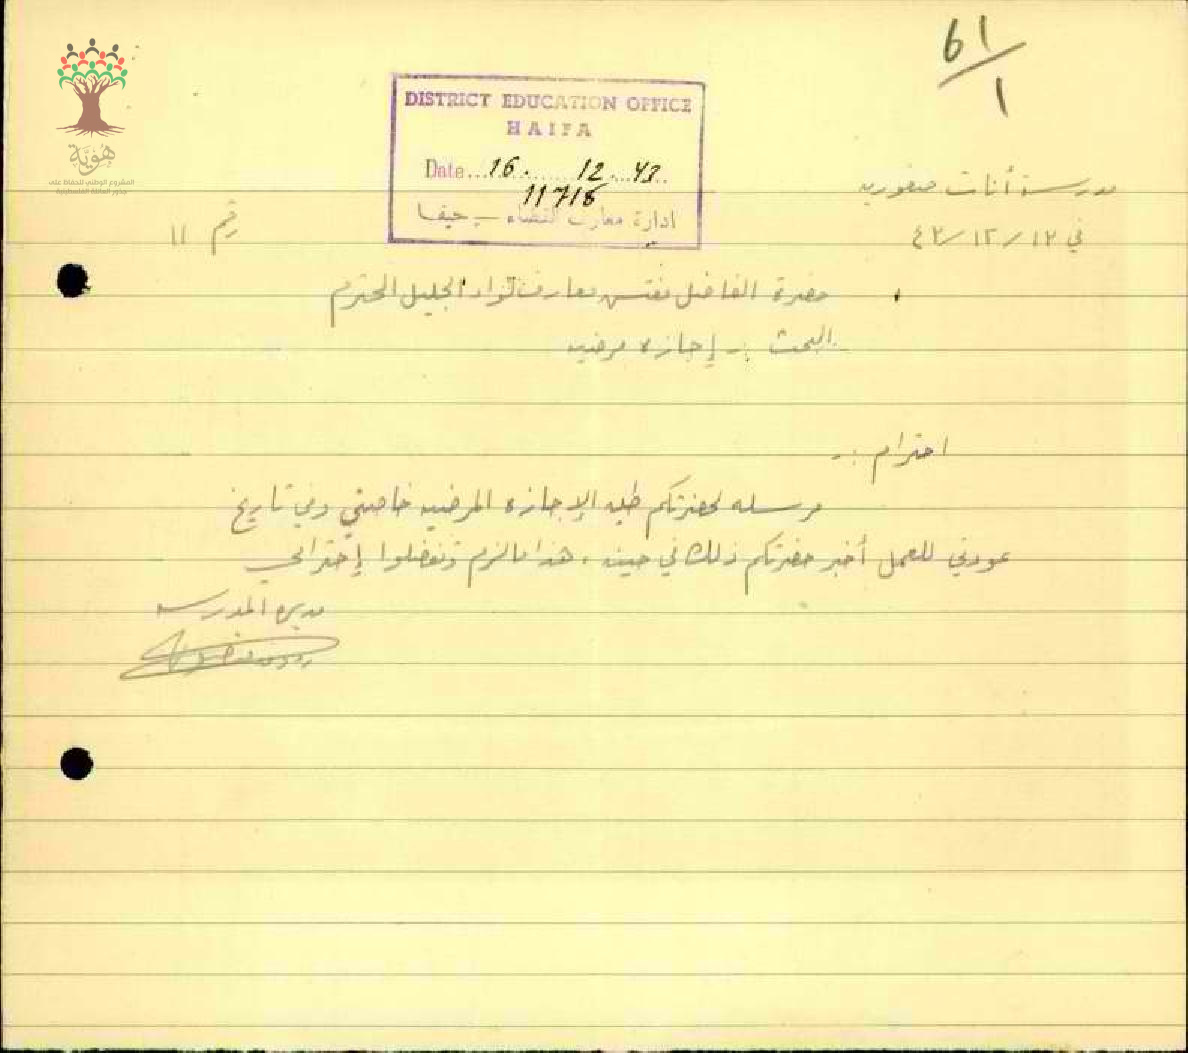 ٦١/١
هُوِيَّة
المشروع الوطني للحفاظ على
جذور العائلة الفلسطينية
DISTRICT EDUCATION OFFICE
HAIFA
Date...16.......12....43..
11716
ادارة معارف القضاء – حيفا
مدرسة أناث صفوريه
في ١٢/١٢/٤٣
رقم ١١
حضرة الفاضل مفتش معارف لواء الجليل المحترم
البحث :- إجازه مرضيه
احترام :-
مرسله لحضرتكم طيه الإجازه المرضيه خاصتي وفي تاريخ
عودتي للعمل أخبر حضرتكم ذلك في حينه . هذا ما لزم وتفضلوا إحترامي
مديره المدرسه